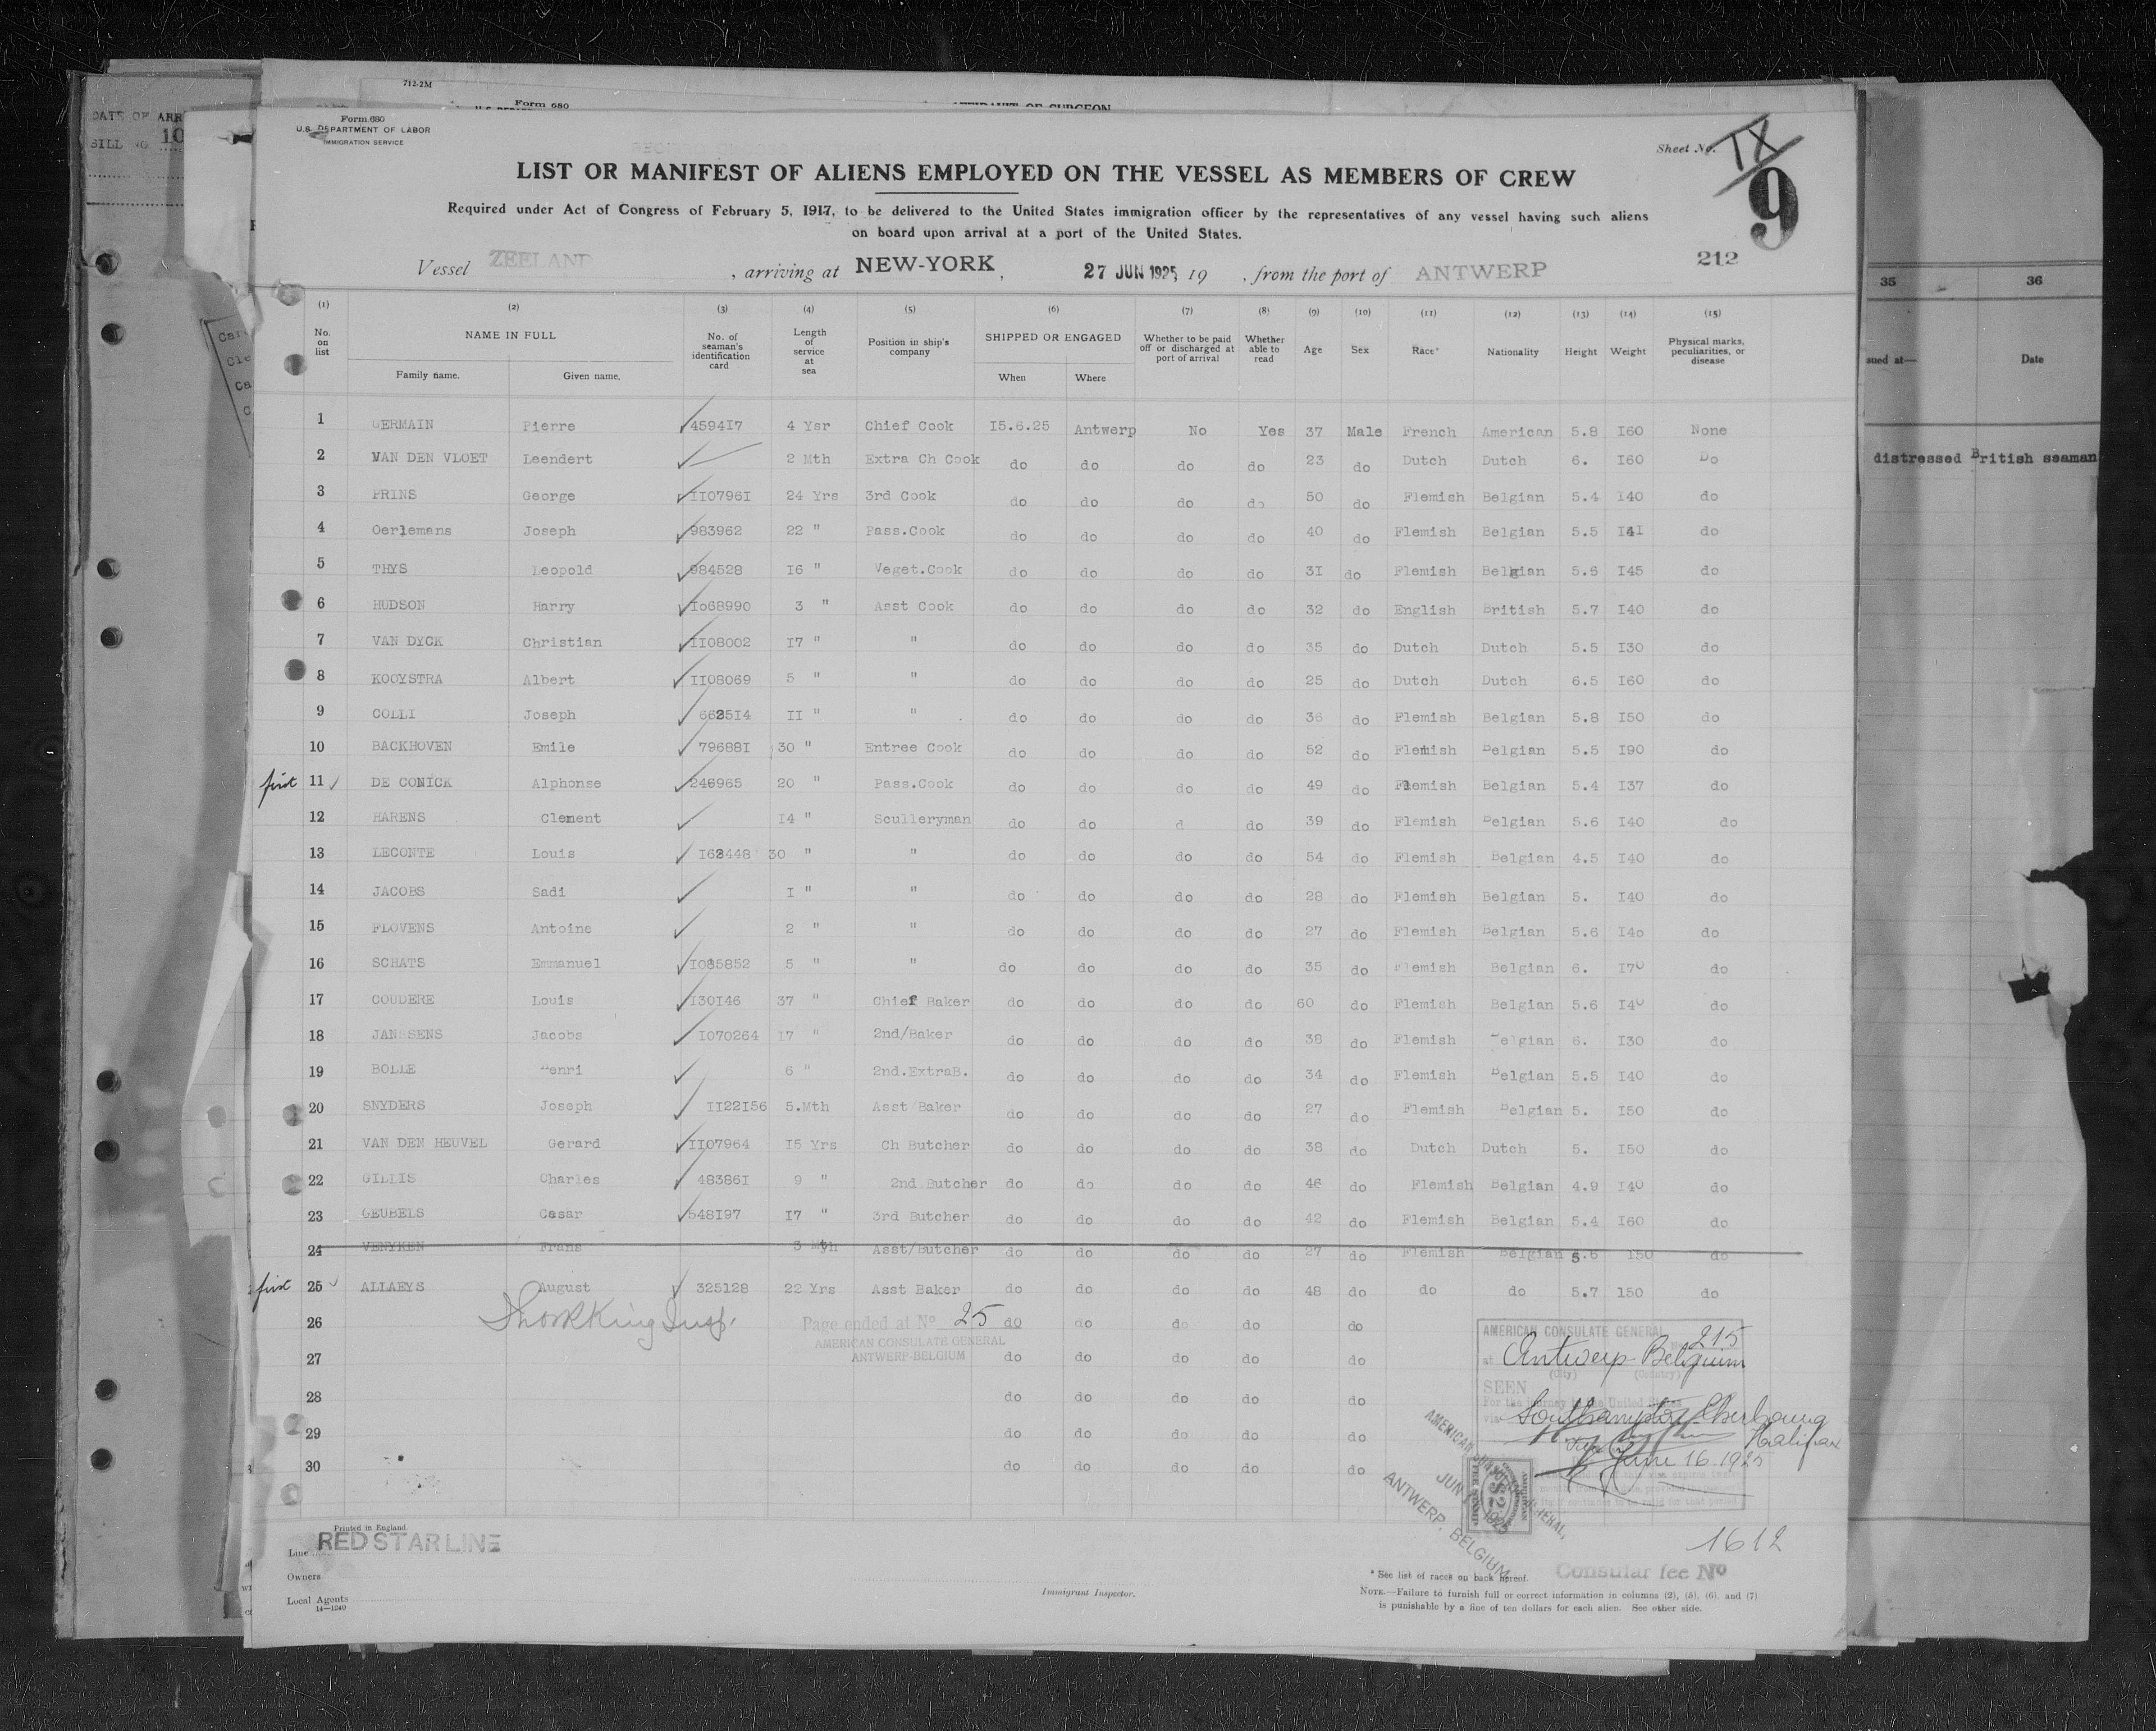 712-2M
Form 680
AFFIDAVIT OF SURGEON
DATE OF ARR
BILL NO. 10
Form 680
U.S. DEPARTMENT OF LABOR
IMMIGRATION SERVICE
Sheet No. IX
9
LIST OR MANIFEST OF ALIENS EMPLOYED ON THE VESSEL AS MEMBERS OF CREW
Required under Act of Congress of February 5, 1917, to be delivered to the United States immigration officer by the representatives of any vessel having such aliens
on board upon arrival at a port of the United States.
212
Vessel ZEELAND , arriving at NEW-YORK, 27 JUN 1925 19 , from the port of ANTWERP
(1) (2) (3) (4) (5) (6) (7) (8) (9) (10) (11) (12) (13) (14) (15)
No. on list NAME IN FULL Family name. Given name. No. of seaman's identification card Length of service at sea Position in ship's company SHIPPED OR ENGAGED When Where Whether to be paid off or discharged at port of arrival Whether able to read Age Sex Race* Nationality Height Weight Physical marks, peculiarities, or disease
35 36
sued at— Date
1 GERMAIN Pierre 459417 4 Ysr Chief Cook I5.6.25 Antwerp No Yes 37 Male French American 5.8 I60 None
2 VAN DEN VLOET Leendert 2 Mth Extra Ch Cook do do do do 23 do Dutch Dutch 6. I60 Do
distressed British seaman
3 PRINS George II0796I 24 Yrs 3rd Cook do do do do 50 do Flemish Belgian 5.4 I40 do
4 Oerlemans Joseph 983962 22 " Pass.Cook do do do do 40 do Flemish Belgian 5.5 I4I do
5 THYS Leopold 984528 I6 " Veget.Cook do do do do 3I do Flemish Belgian 5.5 I45 do
6 HUDSON Harry Io68990 3 " Asst Cook do do do do 32 do English British 5.7 I40 do
7 VAN DYCK Christian II08002 I7 " " do do do do 35 do Dutch Dutch 5.5 I30 do
8 KOOYSTRA Albert II08069 5 " " do do do do 25 do Dutch Dutch 6.5 I60 do
9 COLLI Joseph II " " do do do do 36 do Flemish Belgian 5.8 I50 do
10 BACKHOVEN Emile 79688I 30 " Entree Cook do do do do 52 do Flemish Belgian 5.5 I90 do
first 11 DE CONICK Alphonse 246965 20 " Pass.Cook do do do do 49 do Flemish Belgian 5.4 I37 do
12 HARENS Clement I4 " Sculleryman do do d do 39 do Flemish Belgian 5.6 I40 do
13 LECONTE Louis 30 " " do do do do 54 do Flemish Belgian 4.5 I40 do
14 JACOBS Sadi I " " do do do do 28 do Flemish Belgian 5. I40 do
15 FLOVENS Antoine 2 " " do do do do 27 do Flemish Belgian 5.6 I4o do
16 SCHATS Emmanuel I085852 5 " " do do do do 35 do Flemish Belgian 6. I70 do
17 COUDERE Louis I30I46 37 " Chief Baker do do do do 60 do Flemish Belgian 5.6 I40 do
18 JANSSENS Jacobs I070264 I7 " 2nd/Baker do do do do 38 do Flemish Belgian 6. I30 do
19 BOLLE Henri 6 " 2nd.ExtraB. do do do do 34 do Flemish Belgian 5.5 I40 do
20 SNYDERS Joseph II22I56 5.Mth Asst Baker do do do do 27 do Flemish Belgian 5. I50 do
21 VAN DEN HEUVEL Gerard II07964 I5 Yrs Ch Butcher do do do do 38 do Dutch Dutch 5. I50 do
22 GILLIS Charles 48386I 9 " 2nd Butcher do do do do 46 do Flemish Belgian 4.9 I40 do
23 GEUBELS Casar 548I97 I7 " 3rd Butcher do do do do 42 do Flemish Belgian 5.4 I60 do
24 VENYKEN Frans 3 Mth Asst/Butcher do do do do 27 do Flemish Belgian 5.6 I50 do
first 25 ALLAEYS August 325128 22 Yrs Asst Baker do do do do 48 do do do 5.7 150 do
26 Page ended at No 25 do do do do do
AMERICAN CONSULATE GENERAL
ANTWERP-BELGIUM
27 do do do do do
28 do do do do do
29 do do do do do
30 do do do do do
AMERICAN CONSULATE GENERAL
No 215
at Antwerp Belgium
(City) (Country)
SEEN
For the journey to the United States
via Southampton Cherbourg
Halifax
June 16 1925
AMERICAN CONSULATE GENERAL,
JUN 1925
ANTWERP, BELGIUM
1612
Printed in England.
Line RED STAR LINE
Owners
Local Agents
14—1240
Immigrant Inspector.
* See list of races on back hereof.
Consular fee No
NOTE.—Failure to furnish full or correct information in columns (2), (5), (6), and (7)
is punishable by a fine of ten dollars for each alien. See other side.